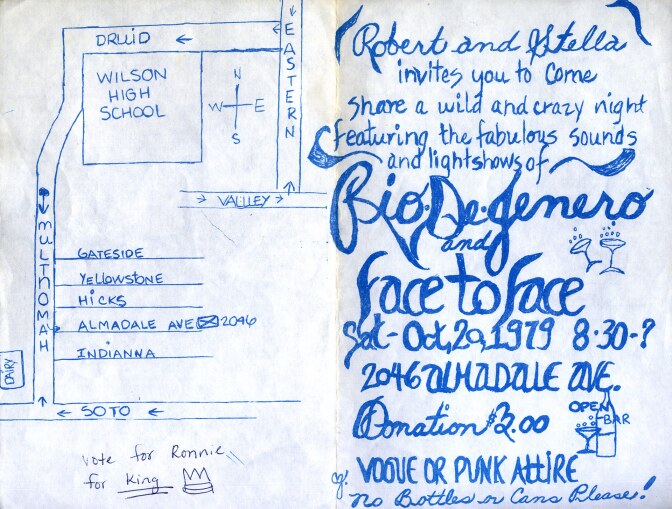 DRUID
EASTERN
WILSON
HIGH
SCHOOL
N
W E
S
VALLEY
MULTNOMAH
GATESIDE
YELLOWSTONE
HICKS
ALMADALE AVE 2046
INDIANNA
DAIRY
SOTO
vote for Ronnie
for King
Robert and Stella
invites you to come
share a wild and crazy night
featuring the fabulous sounds
and lightshows of
Rio-De-Jenero
and
Face to Face
Sat-Oct, 20, 1979 8:30-?
2046 ALMADALE AVE.
Donation $2.00
OPEN
BAR
VOGUE OR PUNK ATTIRE
No Bottles or Cans Please!